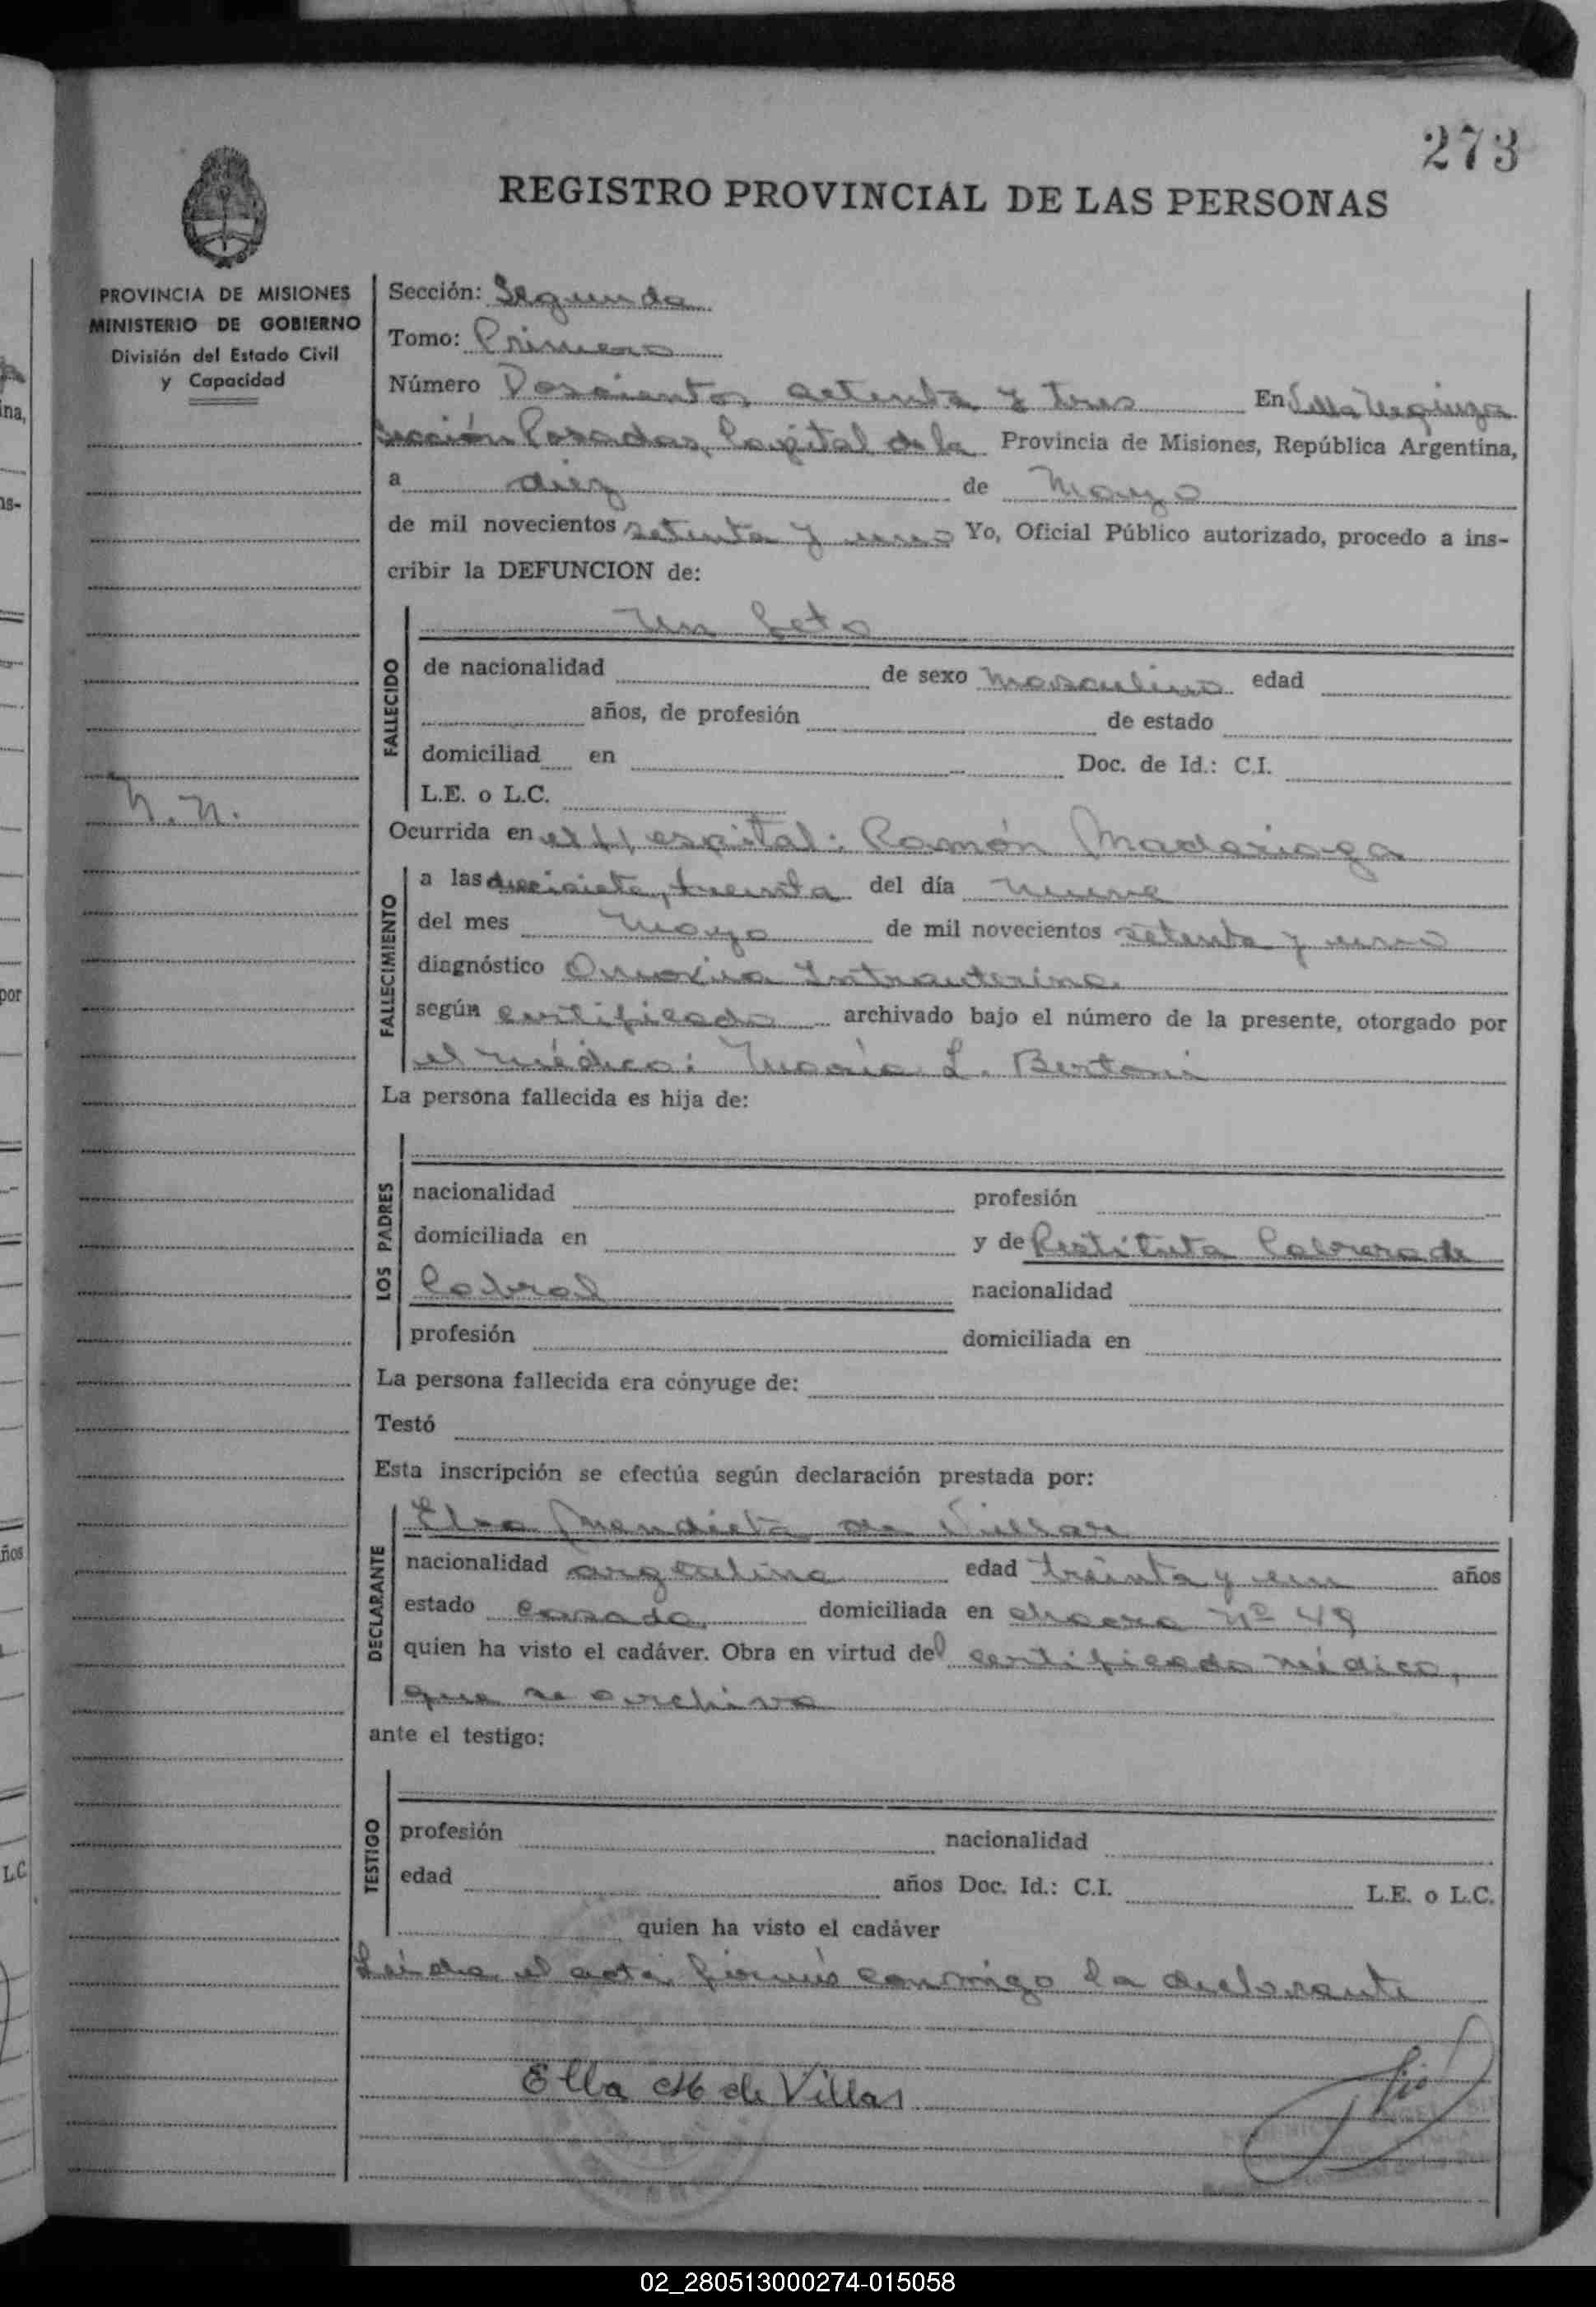 273
REGISTRO PROVINCIAL DE LAS PERSONAS
PROVINCIA DE MISIONES
MINISTERIO DE GOBIERNO
División del Estado Civil
y Capacidad
N. N.
Sección: Segunda
Tomo: Primero
Número Doscientos setenta y tres En Villa Urquiza
Sección Posadas, Capital de la Provincia de Misiones, República Argentina,
a diez de Mayo
de mil novecientos setenta y uno Yo, Oficial Público autorizado, procedo a ins-
cribir la DEFUNCION de:
un feto
FALLECIDO
de nacionalidad de sexo masculino edad
años, de profesión de estado
domiciliad en Doc. de Id.: C.I.
L.E. o L.C.
Ocurrida en el Hospital: Ramón Madariaga
FALLECIMIENTO
a las diecisiete, treinta del día nueve
del mes Mayo de mil novecientos setenta y uno
diagnóstico Intrauterina
según certificado archivado bajo el número de la presente, otorgado por
el médico: María L. Bertoni
La persona fallecida es hija de:
LOS PADRES
nacionalidad profesión
domiciliada en y de Restituta Cabrera de
Cabral nacionalidad
profesión domiciliada en
La persona fallecida era cónyuge de:
Testó
Esta inscripción se efectúa según declaración prestada por:
DECLARANTE
Elba Mendieta de Villar
nacionalidad argentina edad treinta y un años
estado casada domiciliada en chacra Nº 49
quien ha visto el cadáver. Obra en virtud del certificado médico,
que se archiva
ante el testigo:
TESTIGO
profesión nacionalidad
edad años Doc. Id.: C.I. L.E. o L.C.
quien ha visto el cadáver
Leida el acta firmó conmigo la declarante
Elba M de Villar
02_280513000274-015058